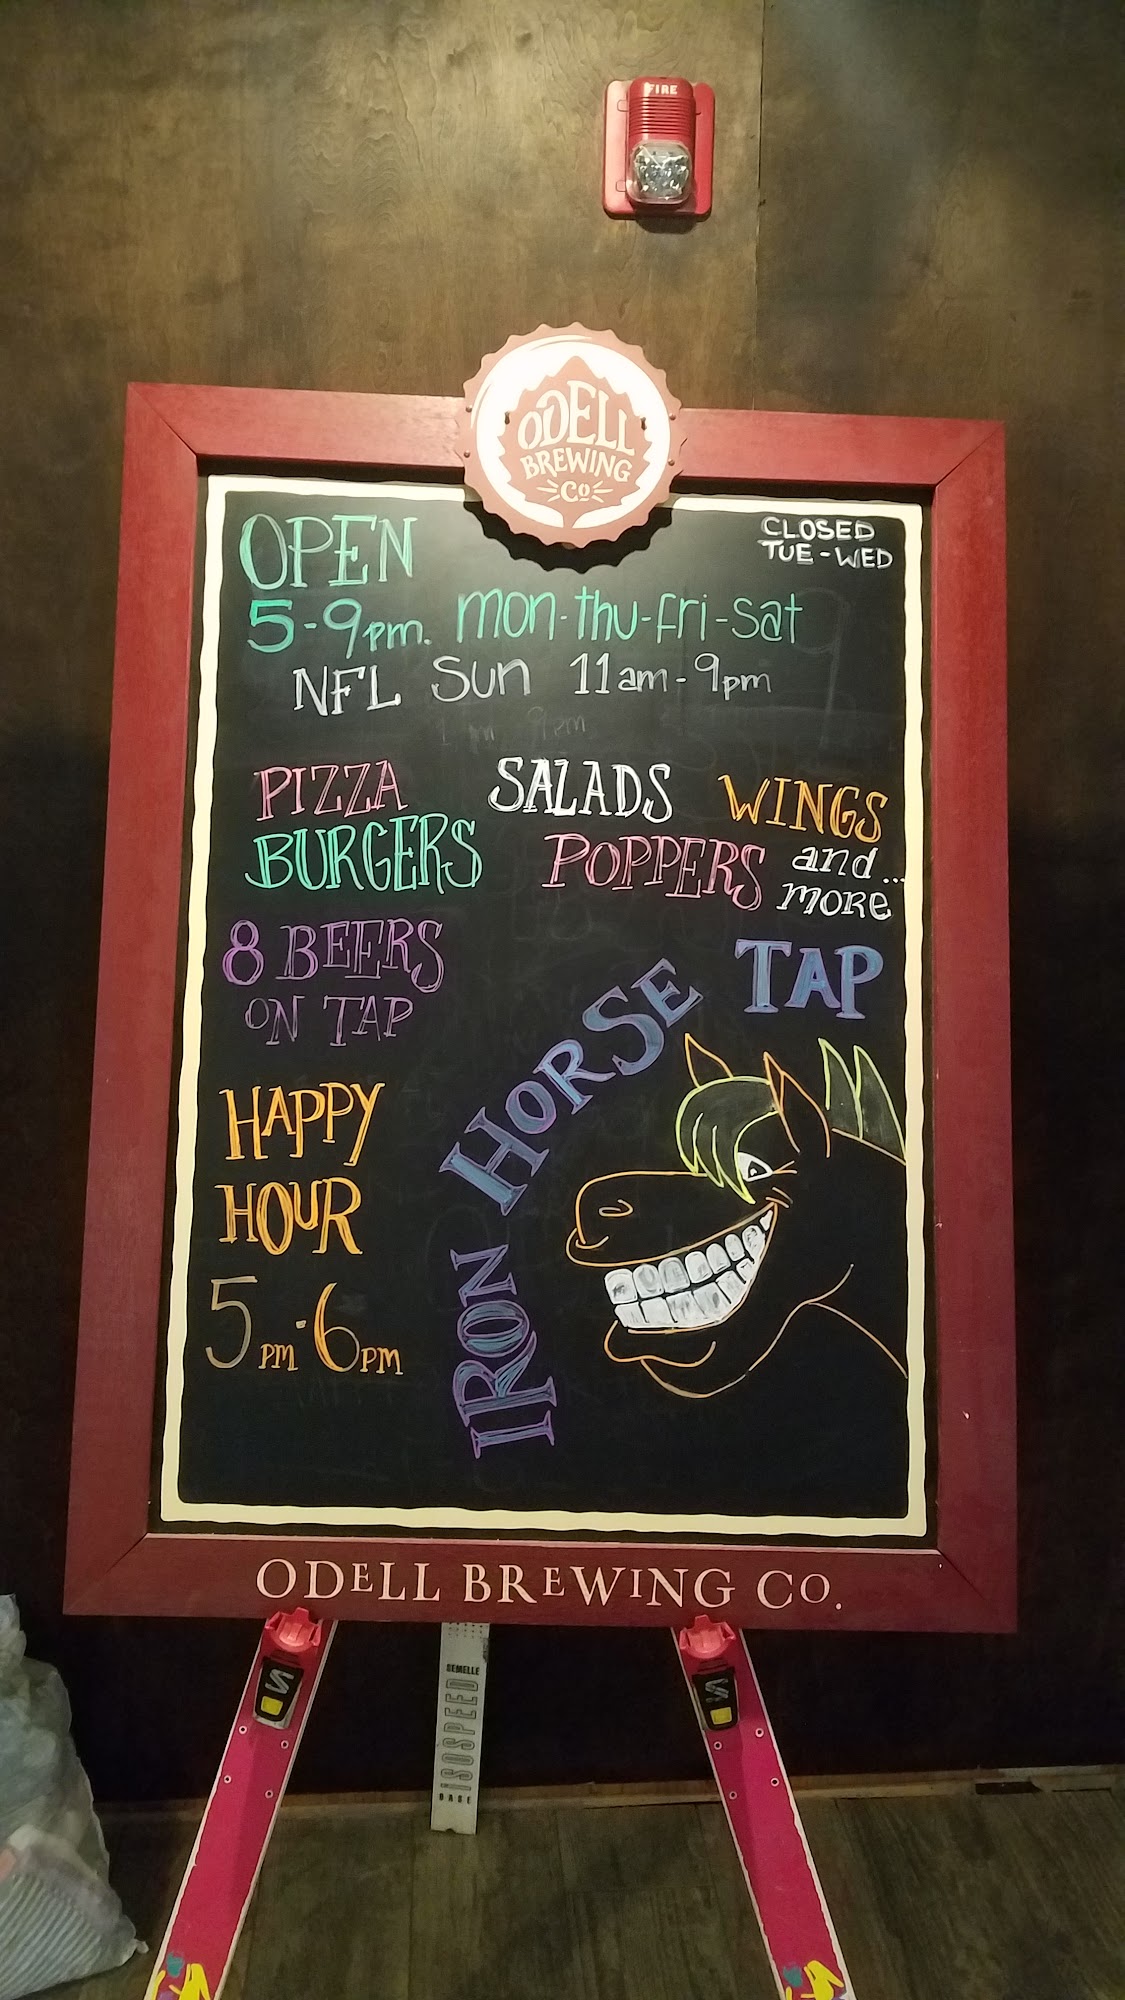 FIRE
ODELL
BREWING
CO
OPEN
CLOSED
TUE - WED
5-9pm. mon-thu-fri-sat
NFL Sun 11am-9pm
PIZZA SALADS WINGS
BURGERS POPPERS and...
more
8 BEERS
ON TAP
IRON HORSE TAP
HAPPY
HOUR
5pm-6pm
ODELL BREWING CO.
SEMELLE
iSOSPEED
BASE